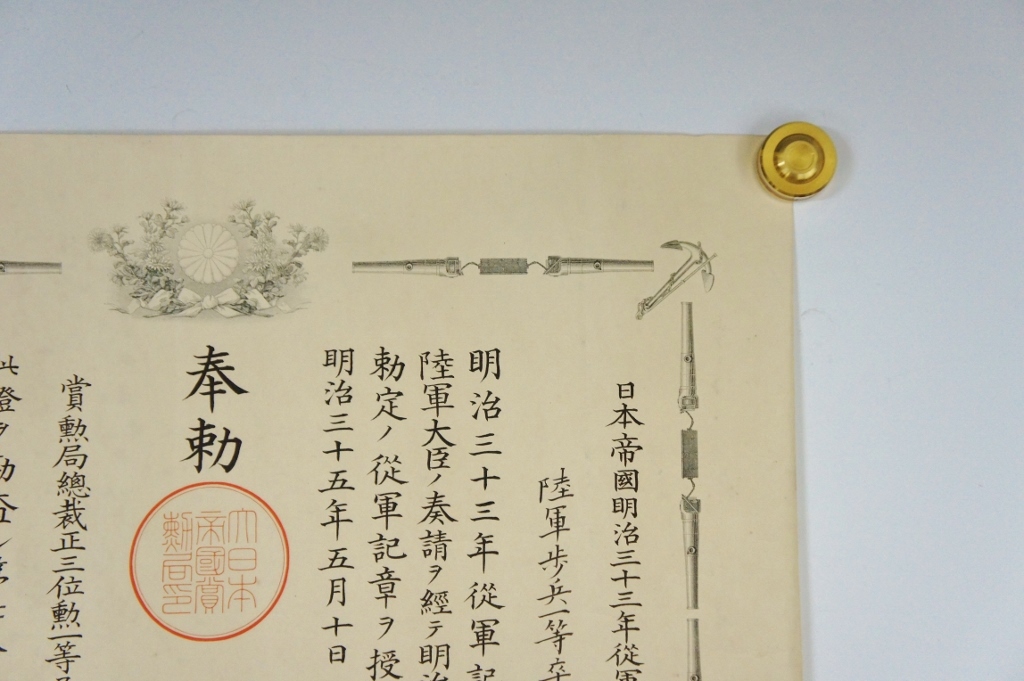 日本帝國明治三十三年從軍
陸軍步兵一等卒
明治三十三年從軍記
陸軍大臣ノ奏請ヲ經テ明治
勅定ノ從軍記章ヲ授
明治三十五年五月十日
奉勅
大日本
帝國賞
勲局印
賞勲局總裁正三位勲一等
此證ヲ勘査シ